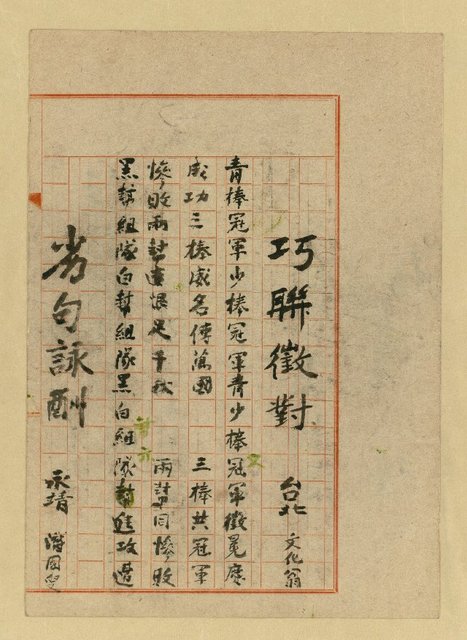 巧聯徵對 台北 文化翁
青棒冠軍少棒冠軍青少棒冠軍徵冕慶
成功三棒威名傳萬國 三棒共冠軍
慘敗兩對遺恨足千秋 兩幫同慘敗
黑幫組隊白幫組隊黑白組隊幫進攻遭
劣句詠酬 承靖